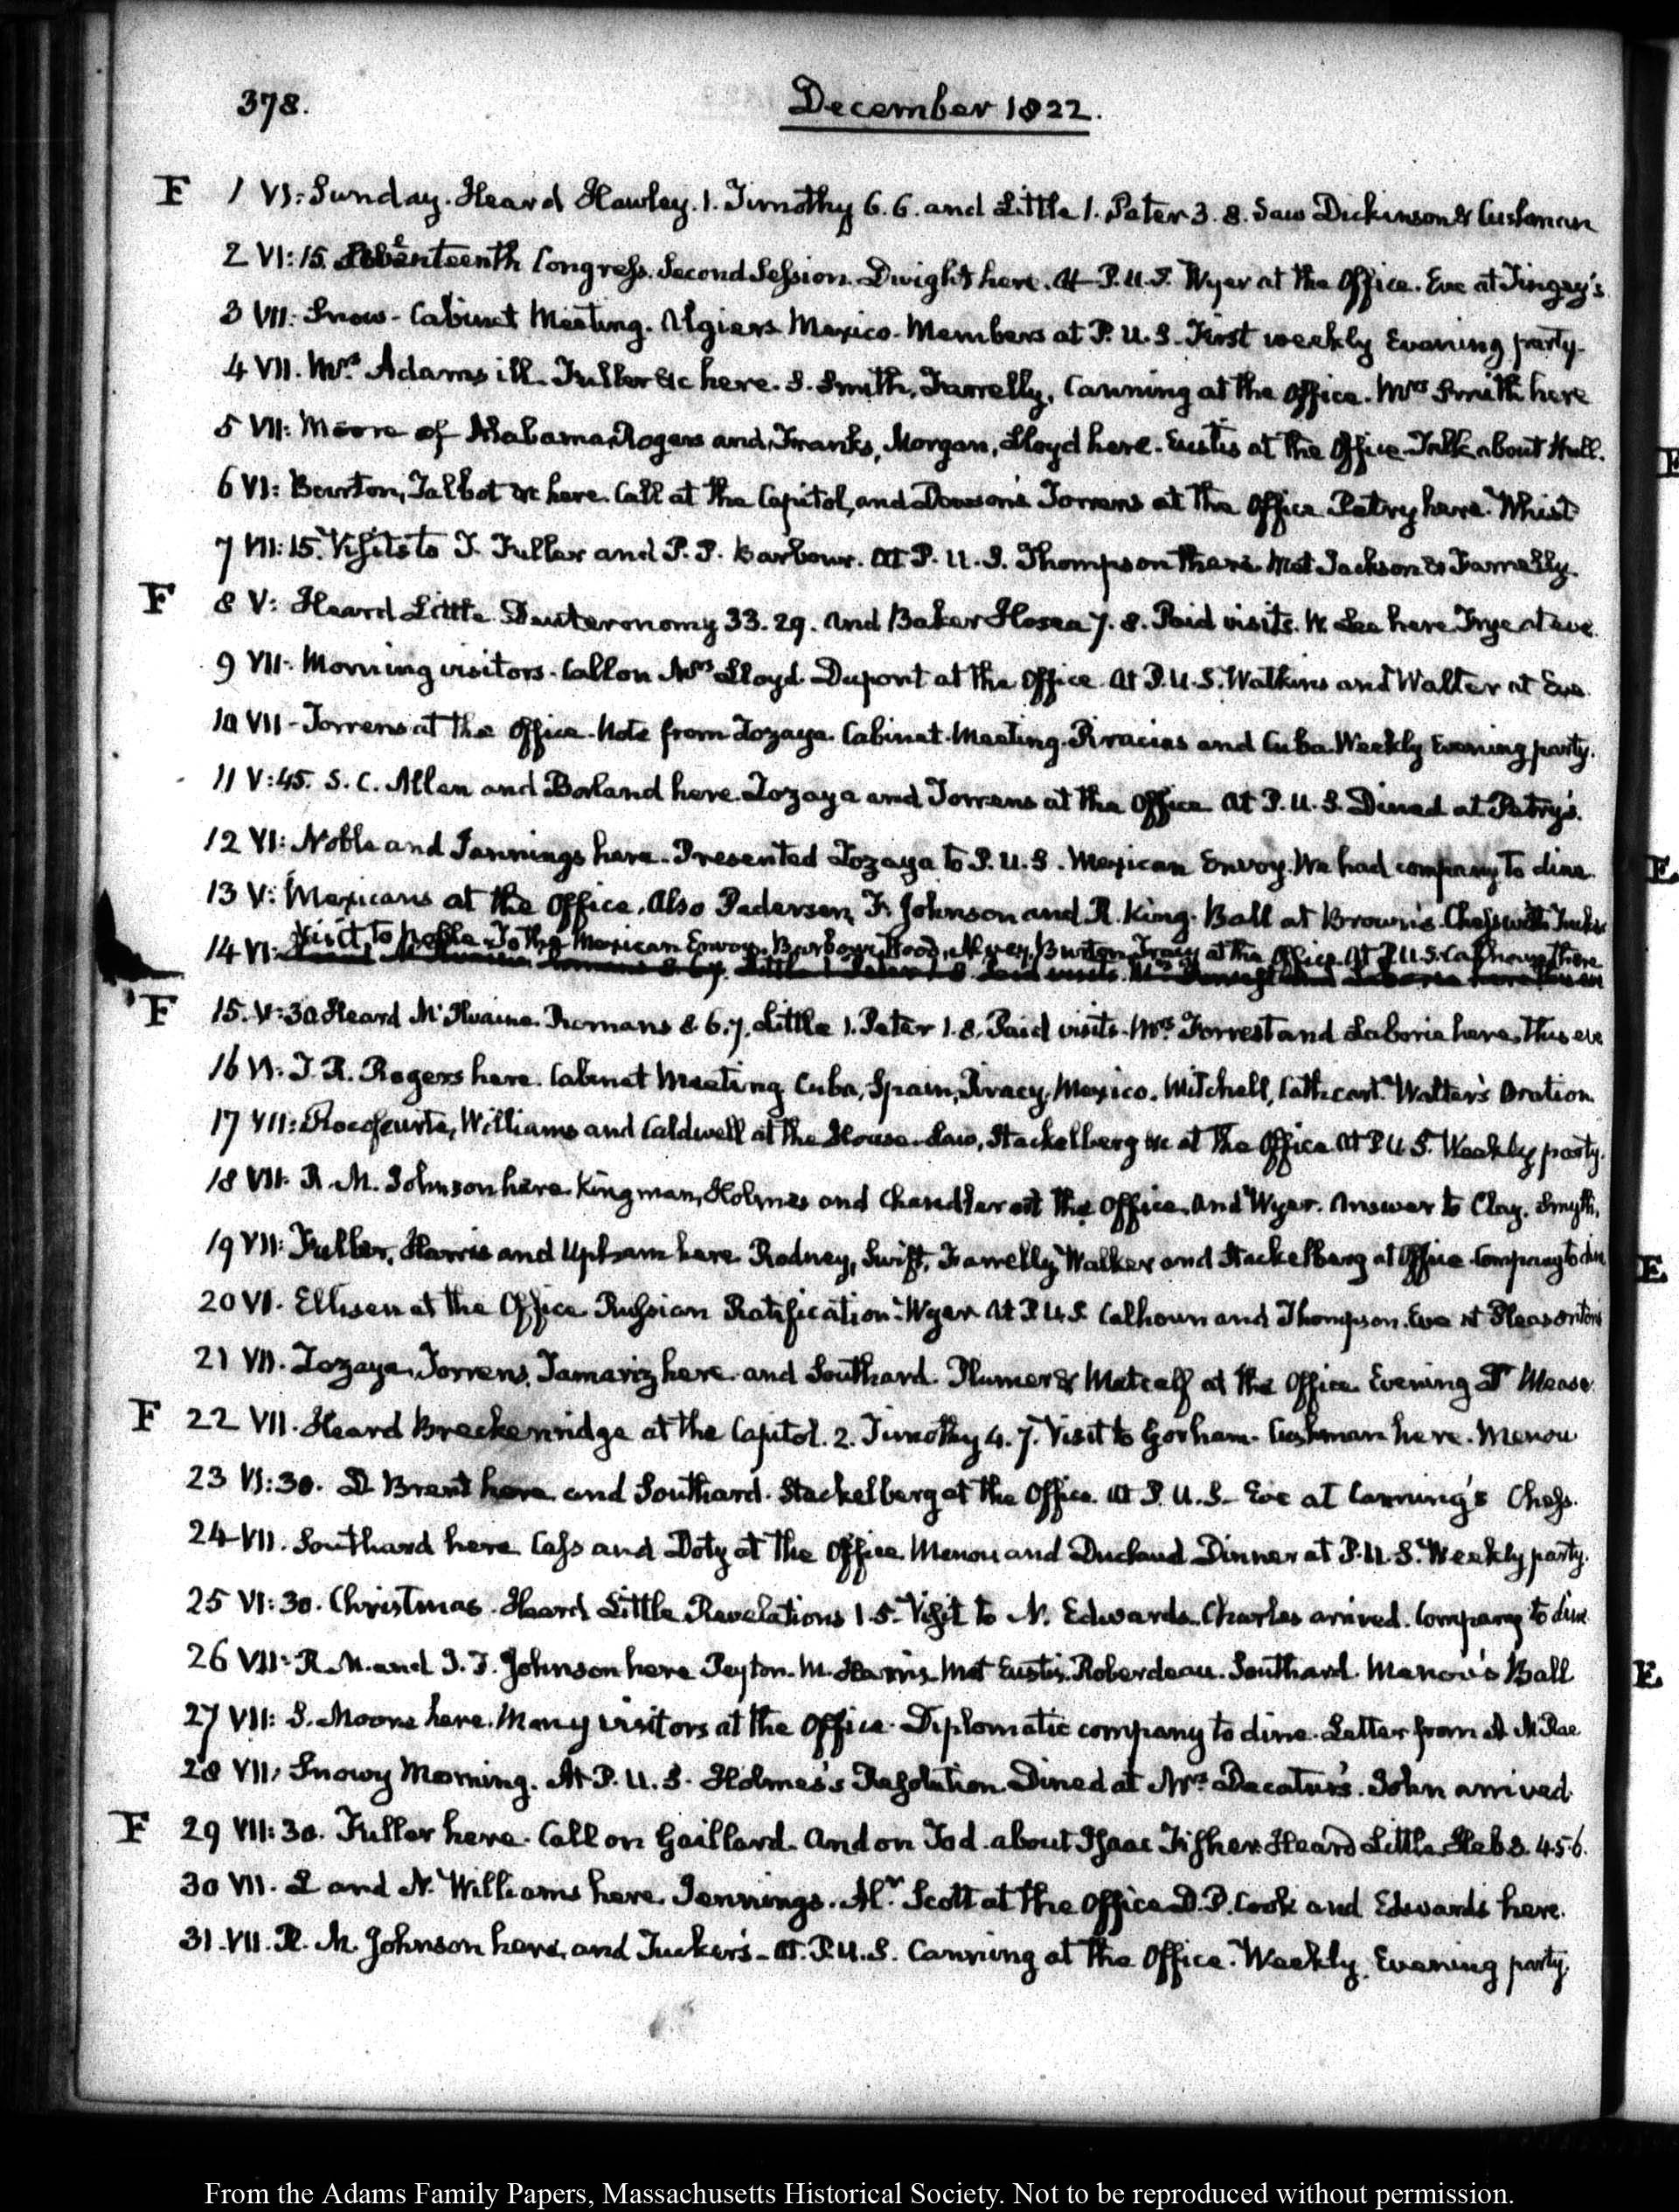 378.
December 1822.
F 1 VI: Sunday. Heard Hawley. 1. Timothy 6. 6. and Little 1. Peter 3. 8. Saw Dickinson & Cushman
2 VI:15. Seventeenth Congress. Second Session. Dwight here. At P.U.S. Wyer at the Office. Eve at Tingey's
3 VII: Snow. Cabinet Meeting. Algiers Mexico. Members at P.U.S. First weekly Evening party.
4 VII. Mrs. Adams ill. Fuller &c here. S. Smith, Farrelly, Canning at the Office. Mrs Smith here
5 VII: Moore of Alabama, Rogers and Franks, Morgan, Lloyd here. Eustis at the Office. Talk about Hull.
6 VI: Burton, Talbot &c here. Call at the Capitol, and Dawson's Torrens at the Office Petry here. Whist
7 VII:15. Visits to T. Fuller and P. P. Barbour. At P.U.S. Thompson there. Met Jackson & Farrelly.
F 8 V: Heard Little Deuteronomy 33. 29. and Baker Hosea 7. 8. Paid visits. W. Lee here Frye at eve.
9 VII. Morning visitors. Call on Mrs Lloyd. Dupont at the Office. At P.U.S. Watkins and Walter at Eve.
10 VII. Torrens at the Office. Note from Zozaya. Cabinet Meeting. Piracies and Cuba. Weekly Evening party.
11 V:45. S. C. Allen and Borland here. Zozaya and Torrens at the Office At P.U.S. Dined at Petry's.
12 VI: Noble and Jennings here. Presented Zozaya to P.U.S. Mexican Envoy. We had company to dine.
13 V: Mexicans at the Office. Also Pedersen, F. Johnson and R. King. Ball at Brown's. Chess with Tucker
14 VI: Visit to Noble. To the Mexican Envoy. Barbour, Hood, Burton, Tracy at the Office. At P.U.S. Calhoun there
F 15. V:30 Heard McIlvaine. Romans 8. 6.7. Little 1. Peter 1. 8. Paid visits. Mrs. Forrest and Laborie here. Thus eve
16 VI: J. R. Rogers here. Cabinet Meeting Cuba, Spain, Piracy, Mexico. Mitchell, Cathcart. Walter's Oration.
17 VII: Rocafuerte, Williams and Caldwell at the House. Law, Stackelberg &c at the Office. At P.U.S. Weekly party.
18 VII. R. M. Johnson here. Kingman, Holmes and Chandler at the Office. And Wyer. Answer to Clay. Smyth,
19 VII: Fuller, Harris and Upham here. Rodney, Swift, Farrelly, Walker and Stackelberg at Office. Company to dine
20 VI. Ellisen at the Office Russian Ratification. Wyer. At P.U.S. Calhoun and Thompson. Eve at Pleasonton's
21 VII. Zozaya, Torrens, Tamariz here. and Southard. Plumer & Metcalf at the Office. Evening Dr Mease
F 22 VII. Heard Breckenridge at the Capitol. 2. Timothy 4. 7. Visit to Gorham. Cushman here. Menou
23 VI:30. D. Brent here and Southard. Stackelberg at the Office. At P.U.S. Eve at Canning's Chess.
24 VII. Southard here Cass and Doty at the Office. Menou and Duclaud. Dinner at P.U.S. Weekly party.
25 VI:30. Christmas. Heard Little Revelations 1. 5. Visit to N. Edwards. Charles arrived. Company to dine
26 VII: R. M. and J. T. Johnson here Peyton. M. Harris. Met Eustis. Roberdeau. Southard. Menou's Ball
27 VII: S. Moore here. Many visitors at the Office. Diplomatic company to dine. Letter from A. McRae
28 VII: Snowy Morning. At P.U.S. Holmes's Resolution. Dined at Mrs Decatur's. John arrived.
F 29 VII:30. Fuller here. Call on Gaillard. And on Tod. about Isaac Fisher. Heard Little Heb 8. 4.5.6.
30 VII. L and N. Williams here. Jennings. Alr Scott at the Office. D. P. Cook and Edwards here.
31. VII. R. M. Johnson here, and Tucker's. At P.U.S. Canning at the Office. Weekly Evening party.
E
E
E
E
From the Adams Family Papers, Massachusetts Historical Society. Not to be reproduced without permission.